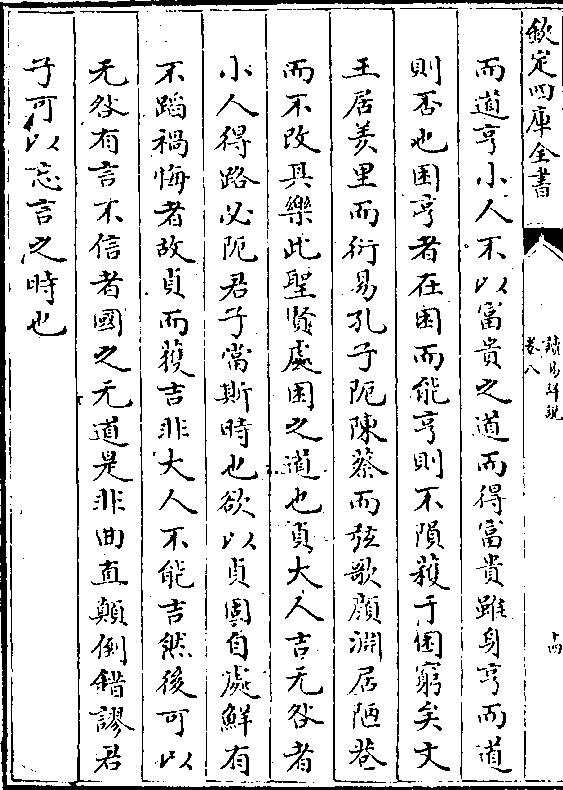 欽定四庫全書
讀易詳說
卷八
十四
而道亨小人不以富貴之道而得富貴雖身亨而道
則否也困亨者在困而能亨則不隕穫于困窮矣文
王居羑里而衍易孔子阨陳蔡而弦歌顔淵居陋巷
而不改其樂此聖賢處困之道也貞大人吉无咎者
小人得路必阨君子當斯時也欲以貞固自處鮮有
不蹈禍悔者故貞而獲吉非大人不能吉然後可以
无咎有言不信者國之无道是非曲直顛倒錯謬君
子可以忘言之時也